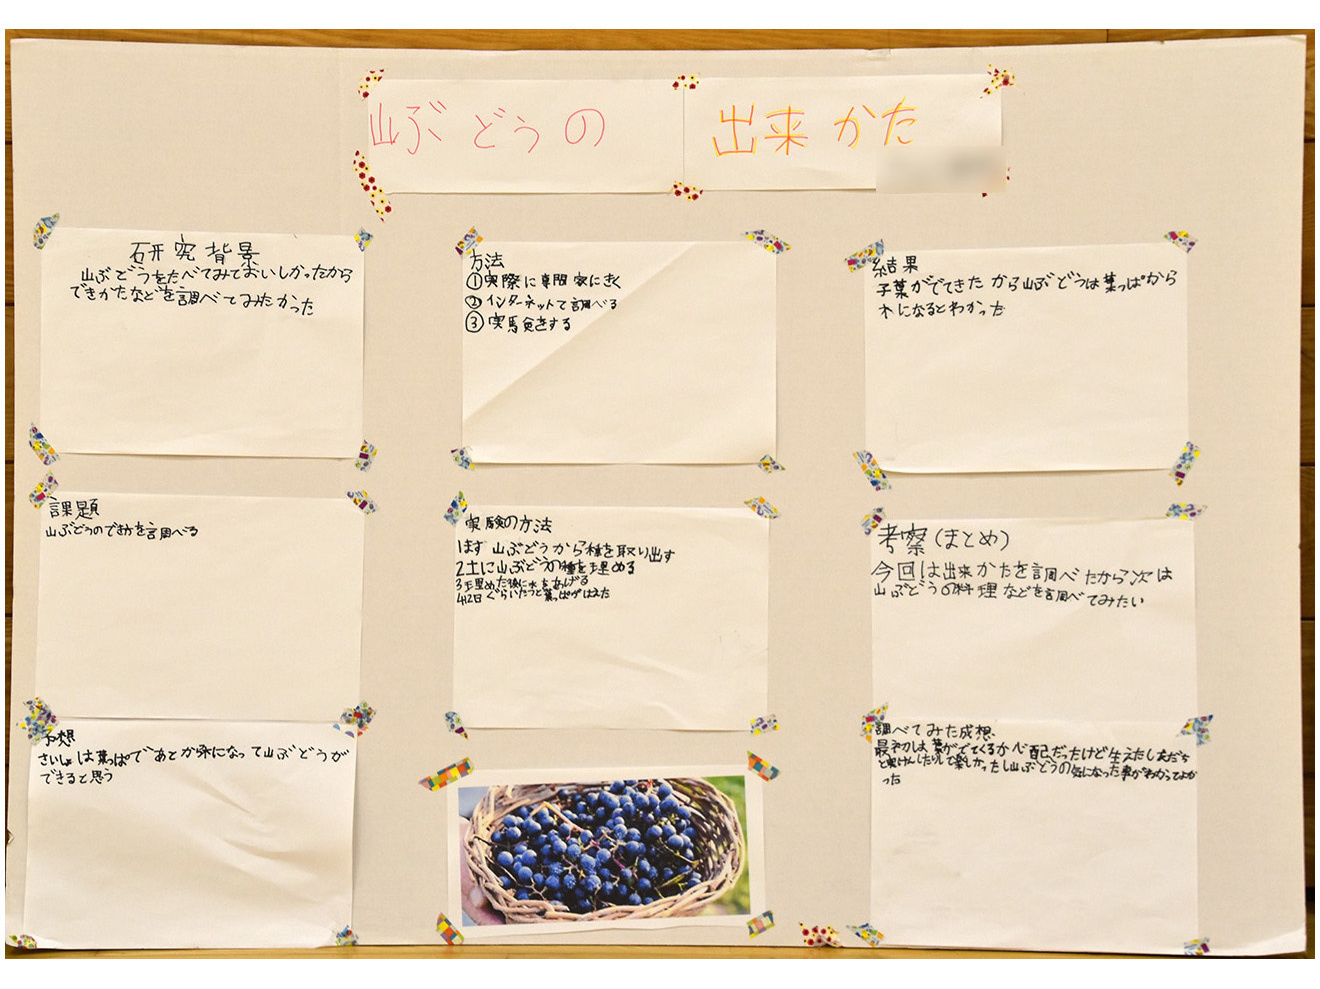 山ぶどうの 出来かた
研究背景
山ぶどうをたべてみておいしかったから
できかたなどを調べてみたかった
課題
山ぶどうのでき方を調べる
予想
さいしょは葉っぱであとから木になって山ぶどうが
できると思う
方法
①実際に専門家にきく
②インターネットで調べる
③実験をする
実験の方法
1まず 山ぶどうから種を取り出す
2土に山ぶどうの種を埋める
3埋めた後に水をあげる
4 12日ぐらいたつと葉っぱがはえた
結果
子葉がでてきたから山ぶどうは葉っぱから
木になるとわかった
考察(まとめ)
今回は出来かたを調べたから次は
山ぶどうの料理などを調べてみたい
調べてみた感想、
最初は葉がでてくるか心配だったけど生えたし友だち
と実けんしたりして楽しかったし山ぶどうの気になった事がわかってよか
った